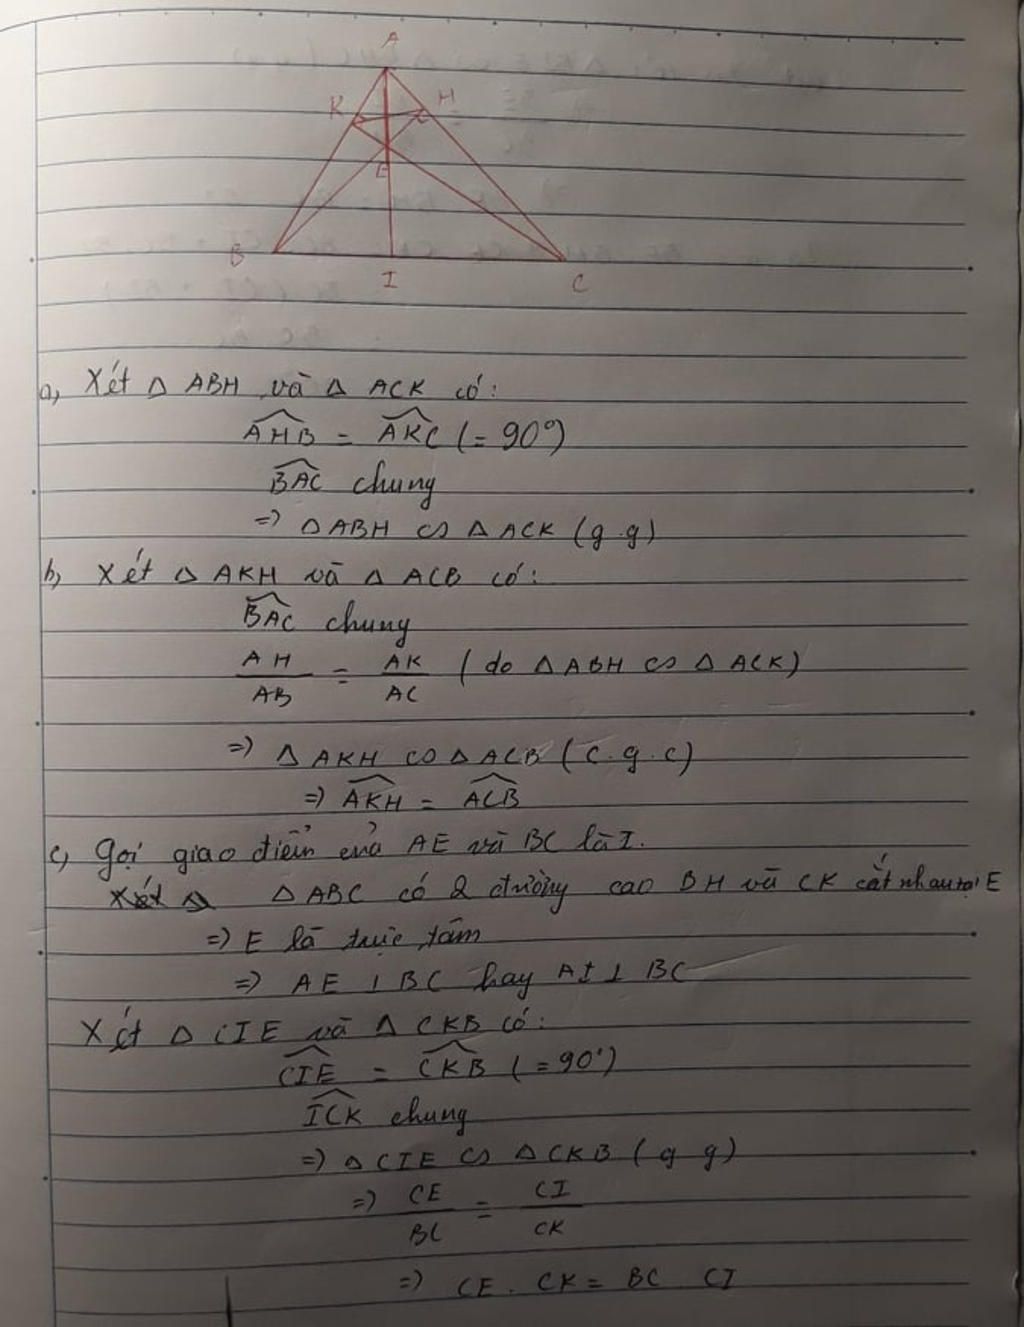 A
K H
E
B
I
C
a, Xét Δ ABH và Δ ACK có:
AHB = AKC (= 90°)
BAC chung
=> Δ ABH ∽ Δ ACK (g.g)
b, Xét Δ AKH và Δ ACB có:
BAC chung
AH/AB = AK/AC (do Δ ABH ∽ Δ ACK)
=> Δ AKH ∽ Δ ACB (c.g.c)
=> AKH = ACB
c, Gọi giao điểm của AE và BC là I.
Δ ABC có 2 đường cao BH và CK cắt nhau tại E
=> E là trực tâm
=> AE ⊥ BC hay AI ⊥ BC
Xét Δ CIE và Δ CKB có:
CIE = CKB (= 90°)
ICK chung
=> Δ CIE ∽ Δ CKB (g g)
=> CE/BC = CI/CK
=> CE . CK = BC CI